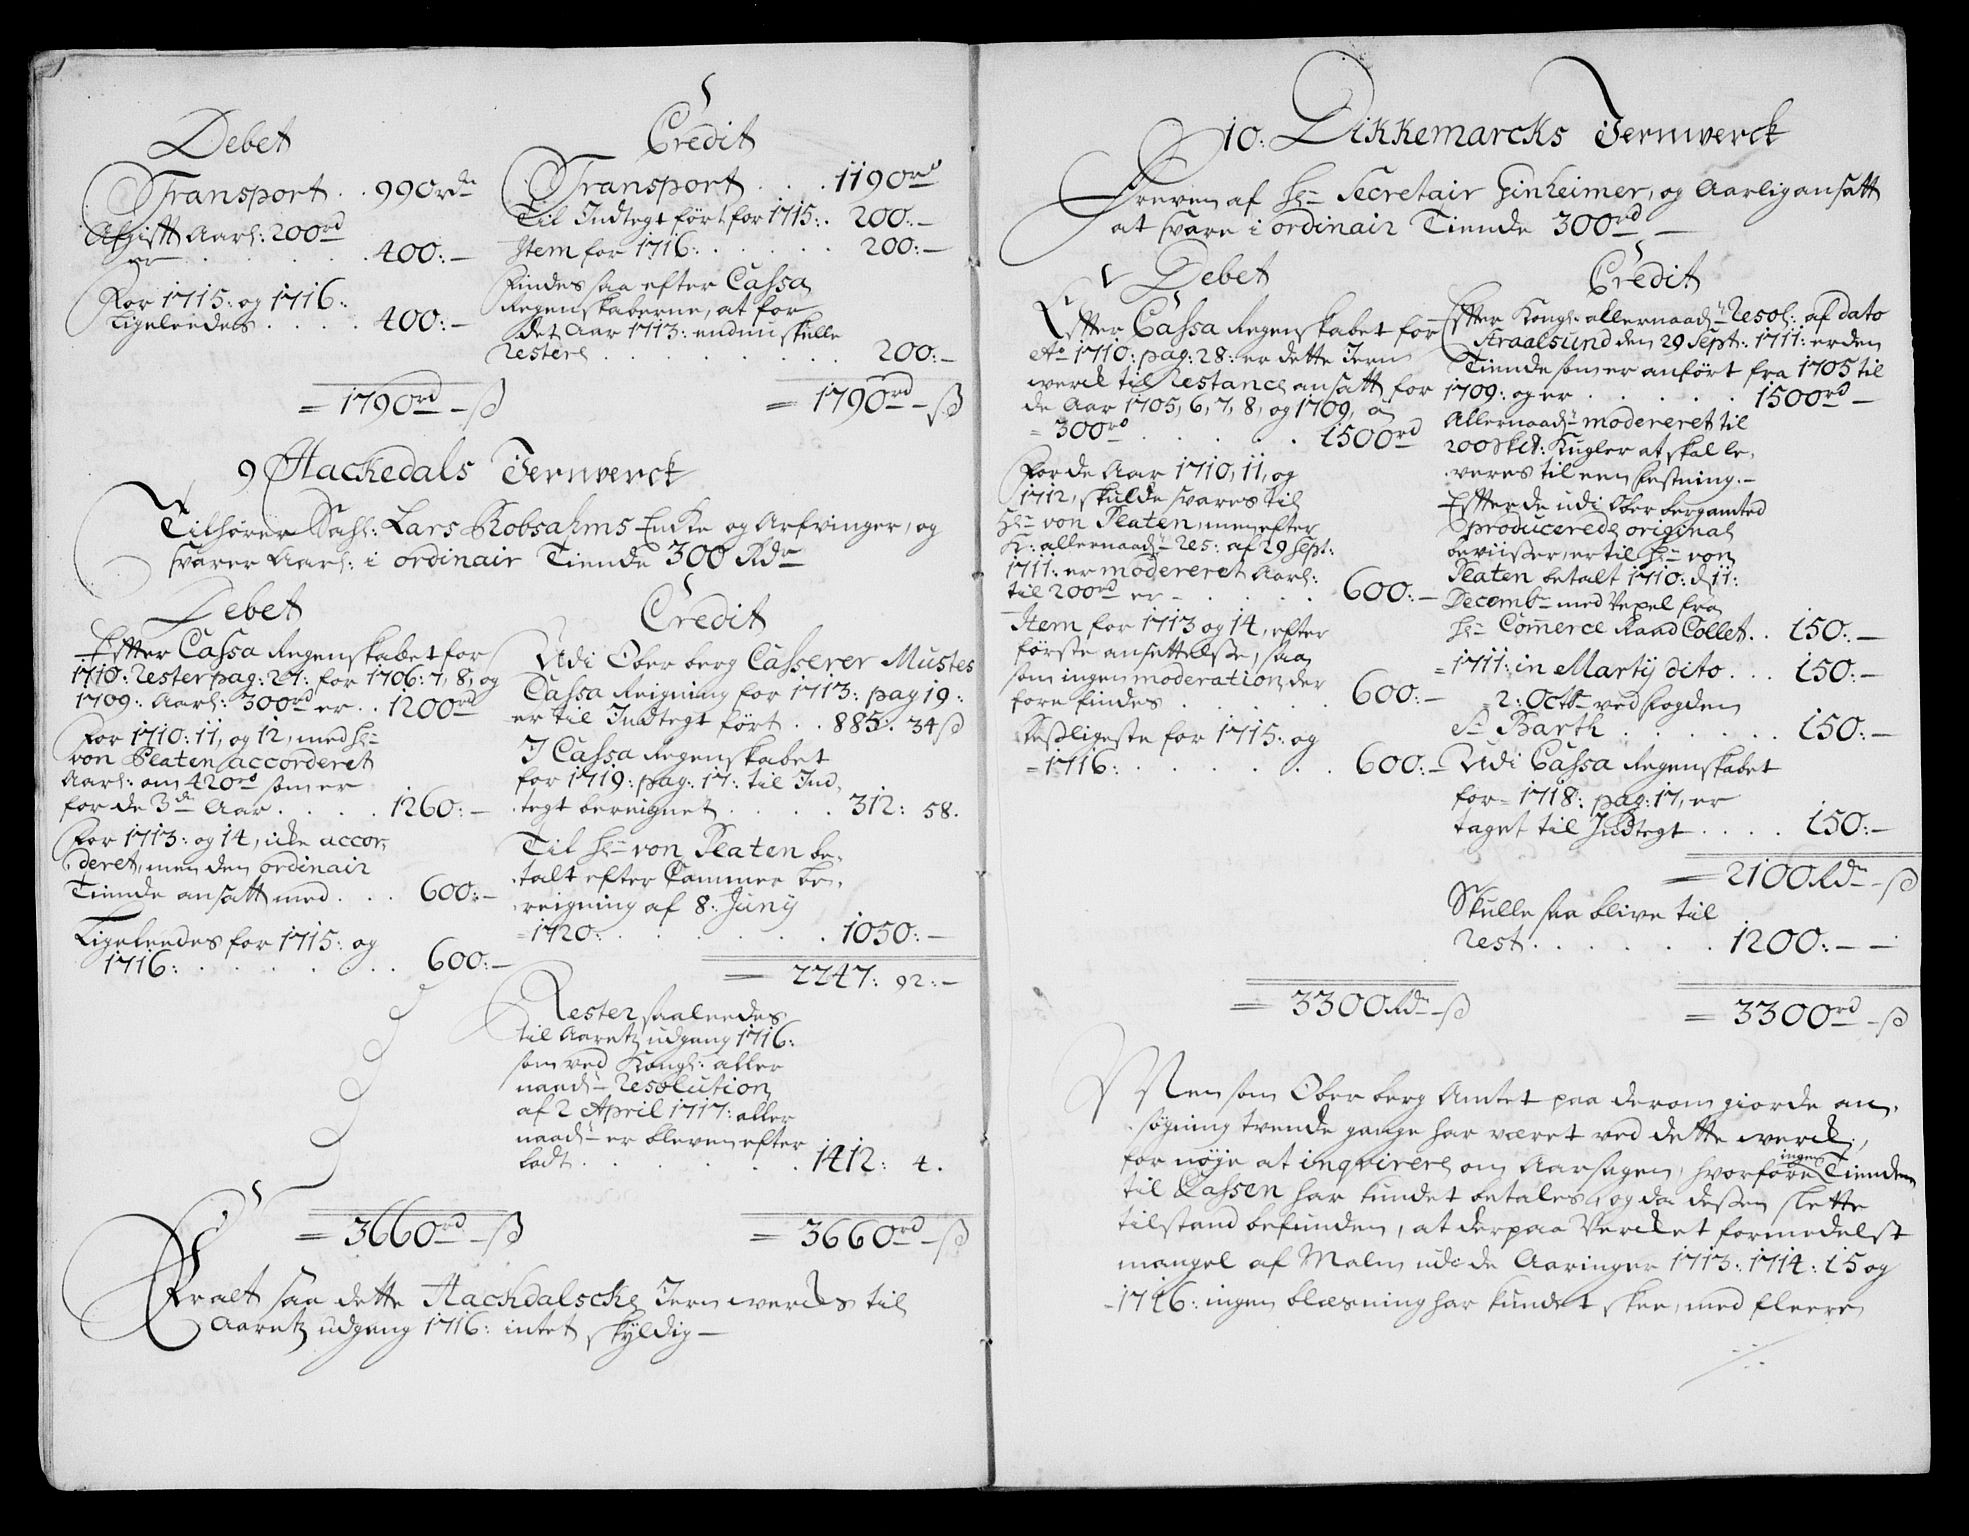 Debet
Transport . . 990 rdr
Afgift Aarl: 200 rd
er . . . . . . 400:-
For 1715: og 1716:
Ligeleedes . . . . 400:-
= 1790 rd - ß
Credit
Transport . . . 1190 rd
Til Indtegt ført for 1715: . 200:-
Item for 1716: . . . . . 200:-
Findes saa efter Cassa
Regenskaberne, at for
det Aar 1713: endnu skulle
restere . . . . . . . 200:-
= 1790 rd - ß
9 Hackedals Jernverck
Tilhører Sahl: Lars Robsahms Encke og Arfvinger, og
svarer Aarl: i ordinair Tiende 300 Rdr
Debet
Efter Cassa Regenskabet for
1710: Rester pag: 27: for 1706: 7, 8, og
1709: Aarl: 300 rd er . . 1200 rd
For 1710: 11, og 12, med Hr
von Platen accorderet
Aarl: om 420 rd som er
for de 3de Aar . . . . 1260:-
For 1713: og 14, icke accor-
deret, men den ordinair
Tiende ansatt med . . . 600:-
Ligeleedes for 1715: og
1716: . . . . . . . 600:-
= 3660 rd - ß
Credit
Udi Ober berg Casserer Mustes
Cassa Reigning for 1713: pag 19:
er til Indtegt ført . . 885: 34 ß
I Cassa Regenskabet
for 1719: pag: 17: til Ind-
tegt bereignet . . . . 312: 58.
Til Hr von Platen be-
talt efter Cammer be-
reigning af 8: Junij
1720: . . . . . . . 1050:-
= 2247: 92:-
Rester saaleedes
til Aaretz udgang 1716:
som ved Kongl: aller
naadr Resolution
af 2 April 1717: aller
naadr er bleven efter
ladt . . . . . . . 1412: 4.
= 3660 rd - ß
Er alt saa dette Hackdalsche Jern wercks til
Aaretz udgang 1716: intet skyldig -
10: Dikkemarcks Jernverck
Dreven af Hr Secretair Ginheimer, og Aarlig ansatt
at svare i ordinair Tiende 300 rd -
Debet
Efter Cassa Regenskabet for
Ao 1710: pag: 28: er dette Jern
werck til Restance ansatt for
de Aar 1705, 6, 7, 8, og 1709, a
= 300 rd . . . . . 1500 rd
For de Aar 1710, 11, og
1712, skulde svares til
Hr von Platen, men efter
K: allernaadr Res: af 29 Sept:
1711: er modereret Aarl:
til 200 rd er - . . . . 600:-
Item for 1713 og 14, efter
første ansættelse, saa
som ingen moderation der
fore findes . . . . . 600:-
Desligeste for 1715: og
= 1716: . . . . . . 600:-
= 3300 Rdr - ß
Credit
Efter Kongl: allernaadr Resol: af dato
Straalsund den 29 Sept: 1711: er den
Tiende som er anført fra 1705 til
1709: og er . . . . . 1500 rd -
Allernaadr modereret til
200 Skll: Kugler at skal le-
veres til een Festning. -
Efter de udi Ober bergamted
producerede original
beviisser, er til Hr von
Platen betalt 1710: d 11:
Decembr med Vexel fra
Hr Commerce Raad Collet . . 150:-
= 1711: in Martij dito . . . 150:-
= 2: Octbr ved Fogden
Sr Barth . . . . . . 150:-
Udi Cassa Regenskabet
for = 1718: pag: 17, er
taget til Indtegt . . . . 150:-
= 2100 Rdr - ß
Skulle saa blive til
Rest . . . . . . . 1200:- -
= 3300 rd - ß
Men som Ober berg Amtet paa derom giorde an-
søgning tvende gange har været ved dette werck,
for nøje at inqvirere om Aarsagen, hvorfore ingen Tienden
til Cassen har kundet betales, og da dessen slette
tilstand befunden, at der paa Vercket formedelst
mangel af Malm udi de Aaringer 1713: 1714: 15 og
- 1716: ingen blæsning har kundet skee, med fleere